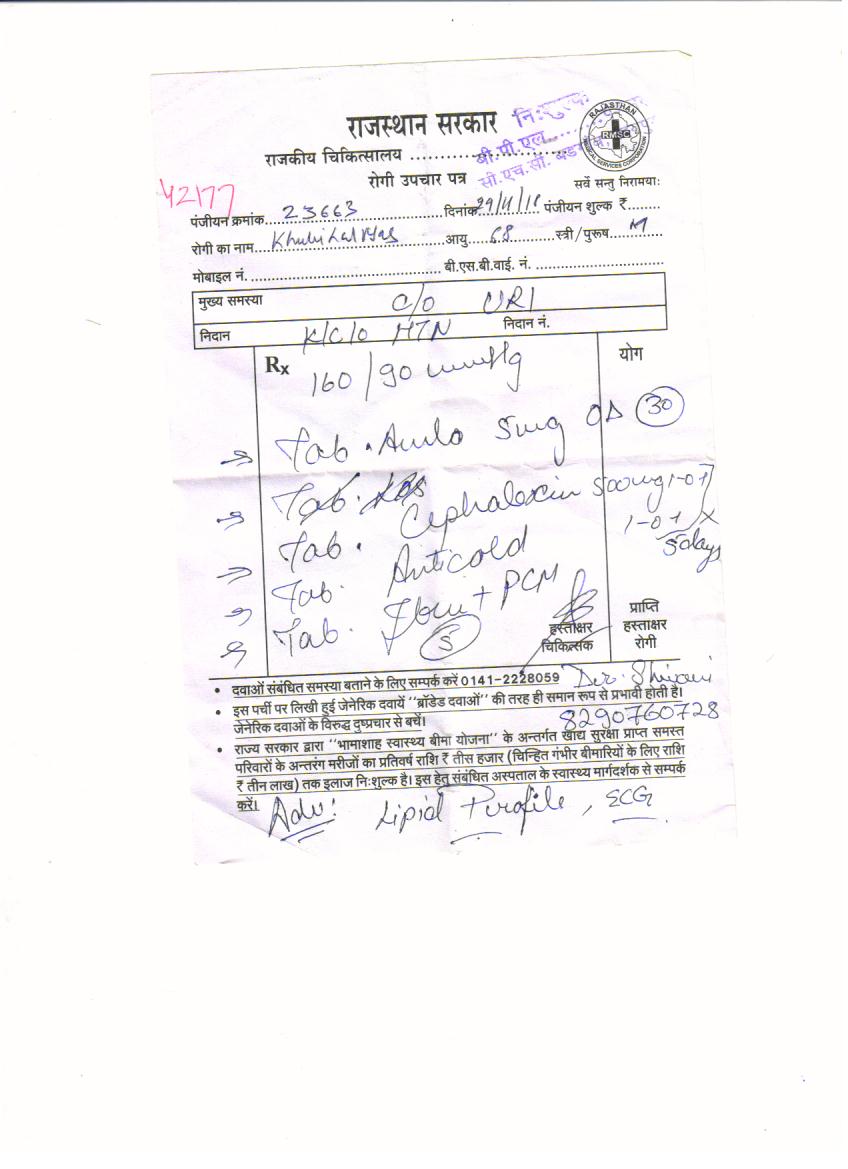 राजस्थान सरकार
नि:शुल्क
राजकीय चिकित्सालय ........................
बी.पी.एल......
सी.एच.सी.
RAJASTHAN
RMSC
MEDICAL SERVICES CORPORATION
रोगी उपचार पत्र
सर्वे सन्तु निरामया:
42177
पंजीयन क्रमांक.... 23663 .... दिनांक 29/11/18 पंजीयन शुल्क ₹........
रोगी का नाम.... Lal .... आयु.... 68 .... स्त्री/पुरूष.... M
मोबाइल नं. ........................ बी.एस.बी.वाई. नं. ........................
मुख्य समस्या C/O URI
निदान K/C/O HTN निदान नं.
Rx 160/90 mmHg योग
→ Tab. Amlo 5mg OD 30
→ Tab. Cephalexin 500mg 1-0-1
1-0-1 x
5days
→ Tab. Anticold
→ Tab. Ibu + PCM
→ Tab. 5
हस्ताक्षर
चिकित्सक
प्राप्ति
हस्ताक्षर
रोगी
• दवाओं संबंधित समस्या बताने के लिए सम्पर्क करें 0141-2228059
• इस पर्ची पर लिखी हुई जेनेरिक दवायें "ब्रॉडेड दवाओं" की तरह ही समान रूप से प्रभावी होती है।
जेनेरिक दवाओं के विरुद्ध दुष्प्रचार से बचें।
8290760728
• राज्य सरकार द्वारा "भामाशाह स्वास्थ्य बीमा योजना" के अन्तर्गत खाद्य सुरक्षा प्राप्त समस्त
परिवारों के अन्तरंग मरीजों का प्रतिवर्ष राशि ₹ तीस हजार (चिन्हित गंभीर बीमारियों के लिए राशि
₹ तीन लाख) तक इलाज निःशुल्क है। इस हेतु संबंधित अस्पताल के स्वास्थ्य मार्गदर्शक से सम्पर्क
करें।
Adv: Lipid Profile, ECG